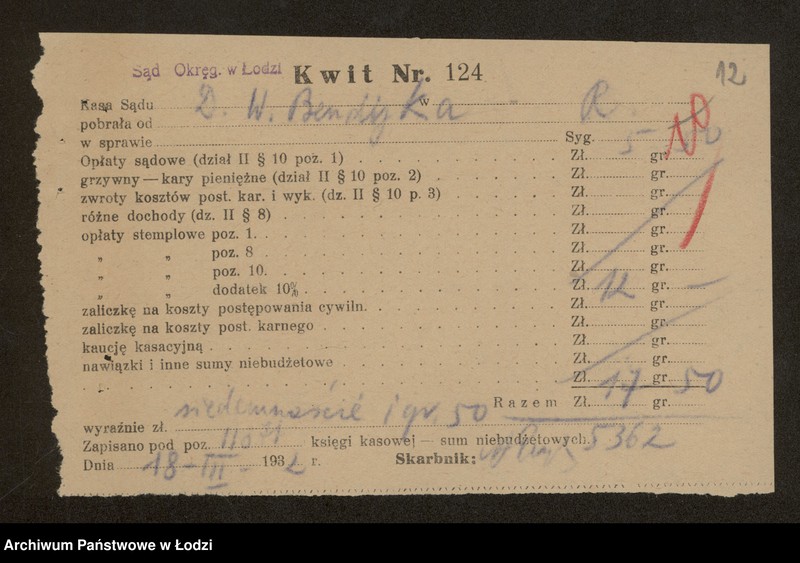 Sąd Okręg. w Łodzi Kwit Nr. 124 12
Kasa Sądu w
pobrała od D. W. R.
w sprawie Syg.
Opłaty sądowe (dział II § 10 poz. 1) Zł. 5 gr. 50
grzywny — kary pieniężne (dział II § 10 poz. 2) Zł. gr.
zwroty kosztów post. kar. i wyk. (dz. II § 10 p. 3) Zł. gr.
różne dochody (dz. II § 8) Zł. gr.
opłaty stemplowe poz. 1. Zł. gr.
„ „ poz. 8 Zł. gr.
„ „ poz. 10. Zł. gr.
„ „ dodatek 10% Zł. 12 gr. —
zaliczkę na koszty postępowania cywiln. Zł. gr.
zaliczkę na koszty post. karnego Zł. gr.
kaucję kasacyjną Zł. gr.
nawiązki i inne sumy niebudżetowe Zł. gr.
Zł. 17 gr. 50
Razem Zł. gr.
wyraźnie zł. siedemnaście i gr. 50
Zapisano pod poz. księgi kasowej — sum niebudżetowych. 5362
Dnia 18-III- 1932 r. Skarbnik:
Archiwum Państwowe w Łodzi